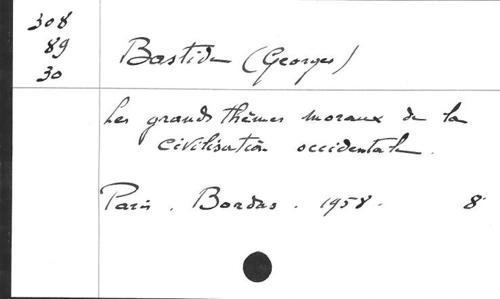 308
89
30
Bastide (Georges)
Les grands thèmes moraux de la
civilisation occidentale.
Paris. Bordas. 1958. 8°